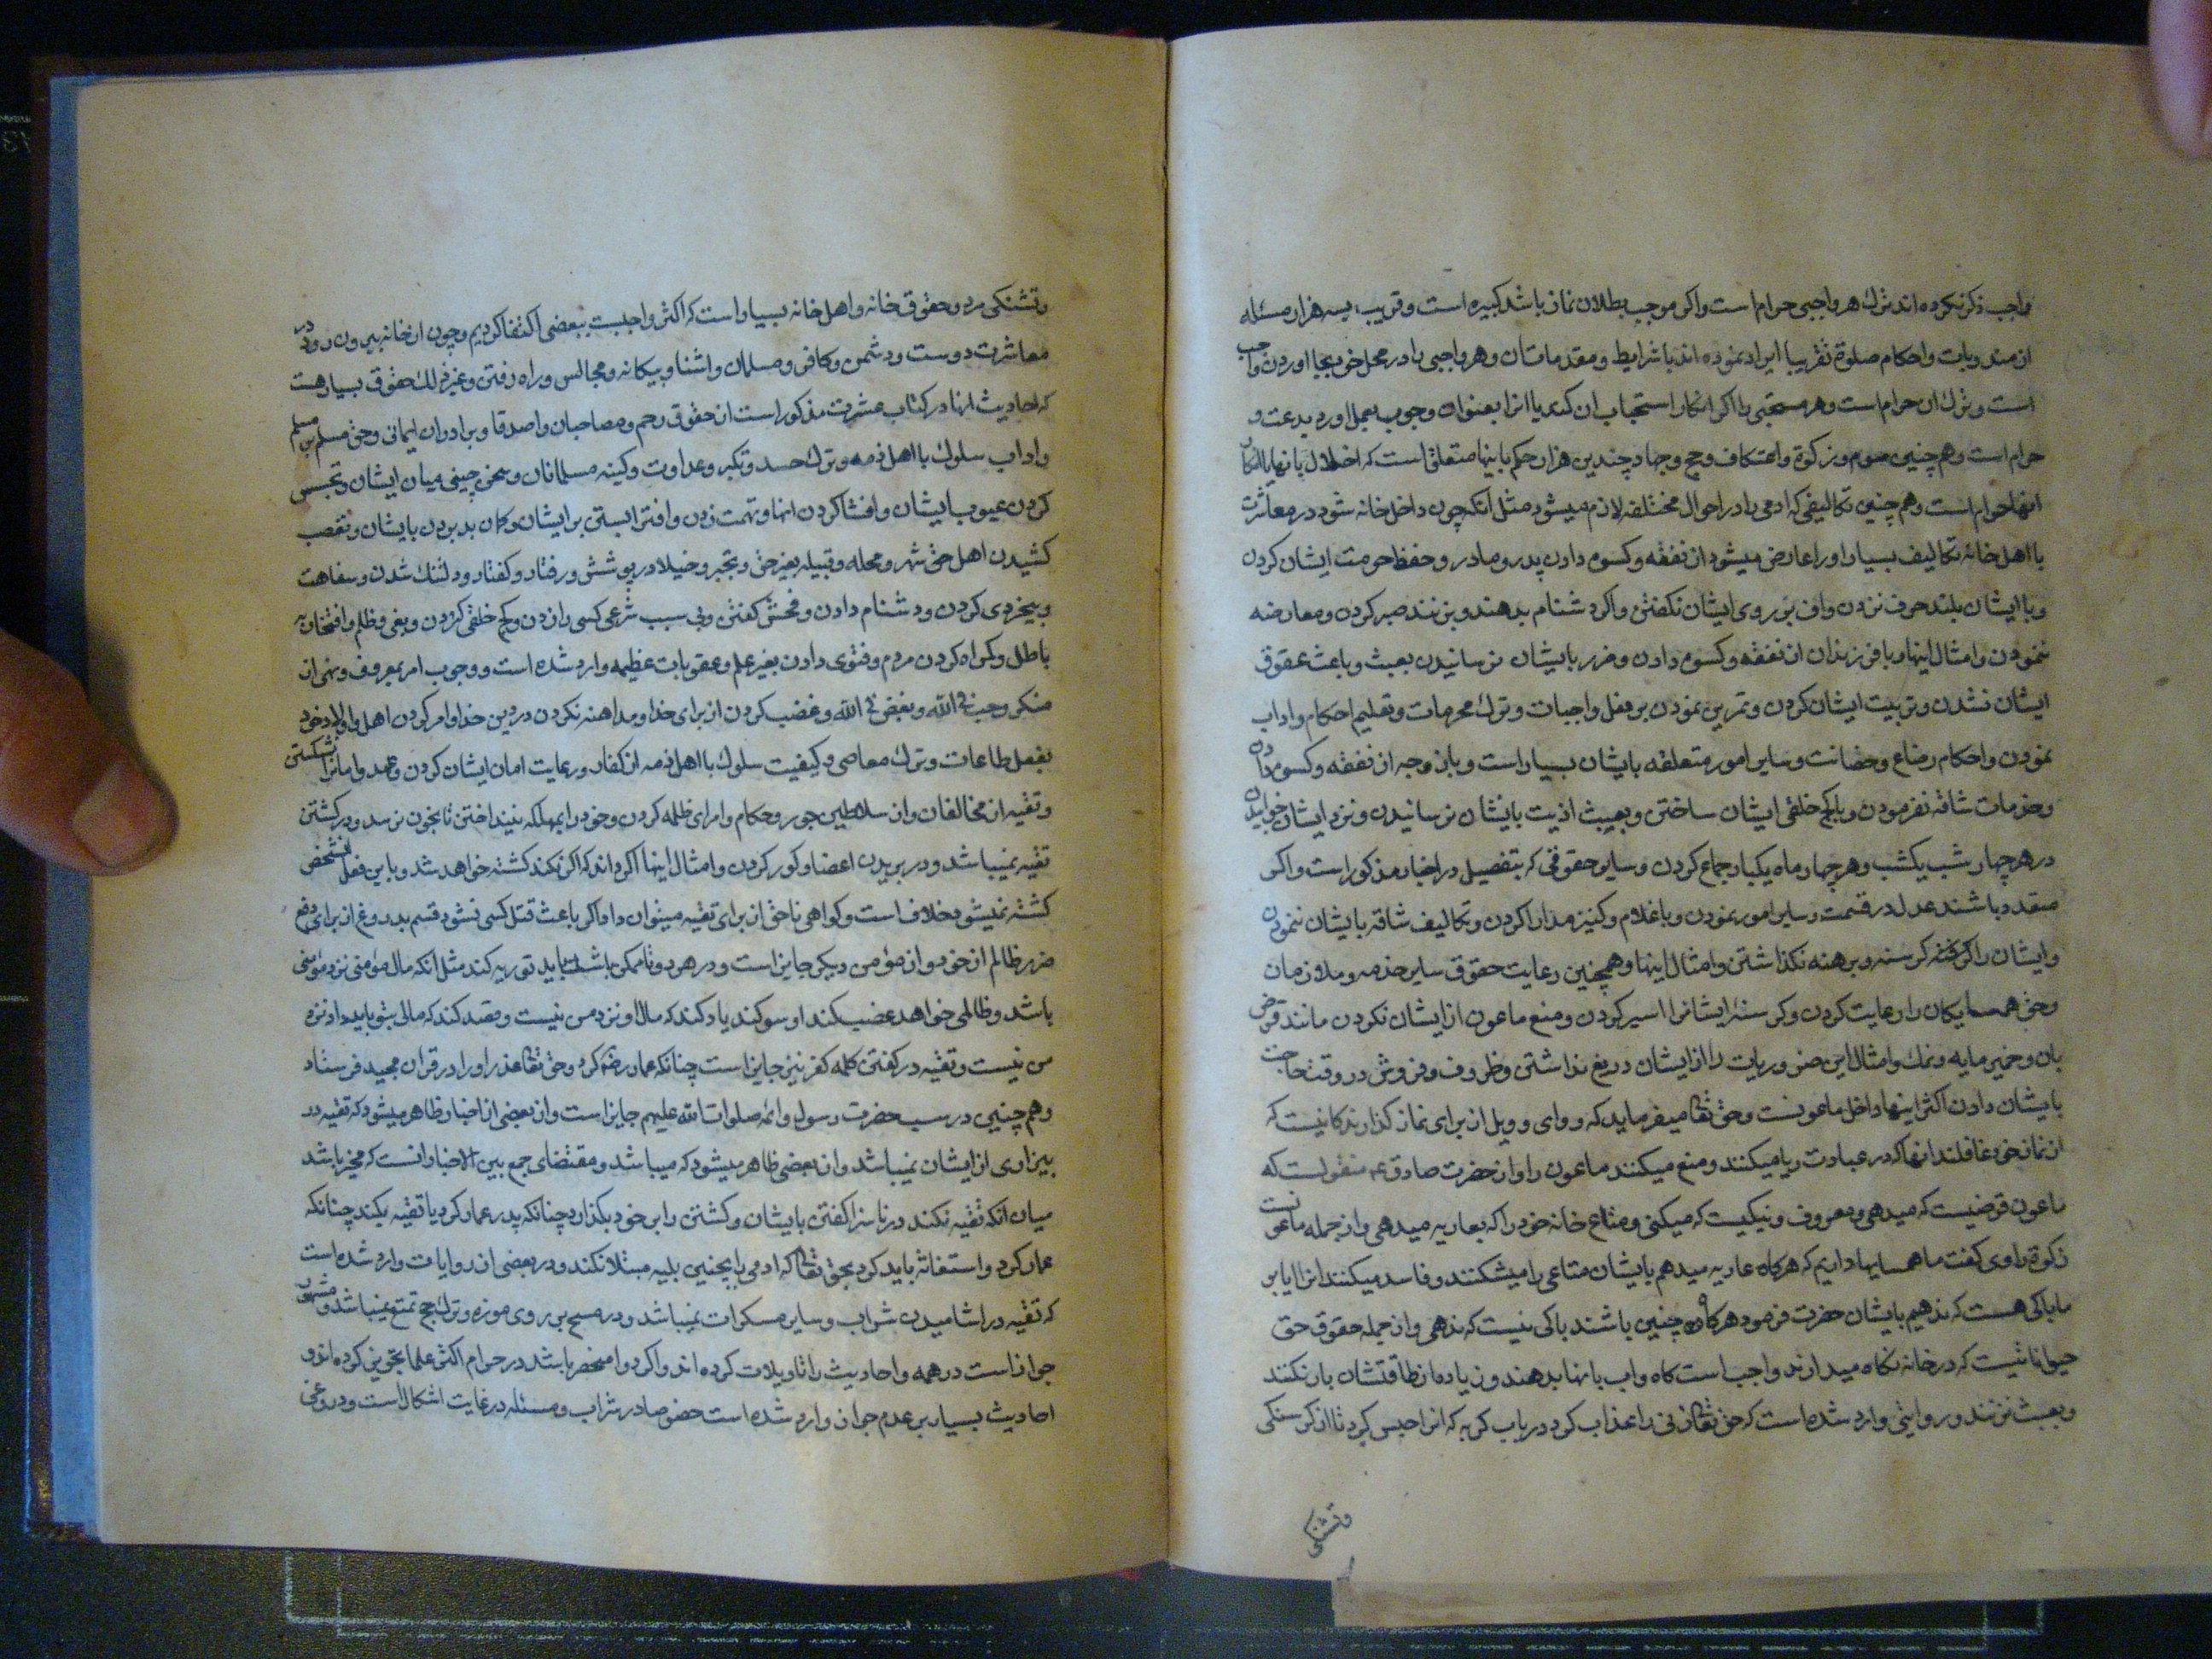 واجب ذکر نکرده اند ترک هر واجبی حرام است و اکر موجب بطلان نماز باشد کبیره است و قریب بسه هزار مسئله
از مندوبات و احکام صلوة تقریبا ایراد نموده اند با شرایط و مقدمات آن و هر واجبی را در محل خود بجا اوردن واجب
است و ترک ان حرام است و هر مستحبی را اکر انکار استحباب ان کند یا انرا بعنوان وجوب بعمل اورد بدعت و
حرام است و همچنین صوم و زکوة و اعتکاف و حج و جهاد چندین هزار حکم باینها متعلق است که اخلال بانها یا انکار
انها حرام است و همچنین تکالیفی که ادمی را در احوال مختلفه لازم میشود مثل آنکه چون داخل خانه شود در معاشرت
با اهل خانه تکالیف بسیار او را عارض میشود از نفقه و کسوه دادن پدر و مادر و حفظ حرمت ایشان کردن
و با ایشان بلند حرف نزدن و اف بر روی ایشان نکفتن و اکر دشنام بدهند و بزنند صبر کردن و معارضه
ننمودن و امثال اینها و با فرزندان از نفقه و کسوه دادن و ضرر بایشان نرسانیدن بعبث و باعث عقوق
ایشان نشدن و تربیت ایشان کردن و تمرین نمودن بر فعل واجبات و ترک محرمات و تعلیم احکام و اداب
نمودن و احکام رضاع و حضانت و سایر امور متعلقه بایشان بسیار است و باز وجه از نفقه و کسوه دادن
و خدمات شاقه نفرمودن و با کج خلقی ایشان ساختن و بعبث اذیت بایشان نرسانیدن و نزد ایشان خوابیدن
در هر چهار شب یکشب و هر چهار ماه یکبار جماع کردن و سایر حقوقی که بتفصیل در اخبار مذکور است و اکر
متعدد باشند عدل در قسمت و سایر امور نمودن و با غلام و کنیز مدارا کردن و تکالیف شاقه بایشان ننمودن
و ایشان را کرسنه و برهنه نکذاشتن و امثال اینها و همچنین رعایت حقوق سایر خدمه و ملازمان
و حق همسایکان را رعایت کردن و کرسنه ایشانرا سیر کردن و منع ماعون از ایشان نکردن مانند قرض
نان و خمیر مایه و نمک و امثال این ضروریات را از ایشان دریغ نداشتن و ظروف و فروش در وقت حاجت
بایشان دادن اکثر اینها داخل ماعونست و حق تعالی میفرماید که و وای و ویل از برای نماز کذارندکانیست که
از نماز خود غافلند انها که در عبادت ریا میکنند و منع میکنند ماعون را و از حضرت صادق ع منقولست که
ماعون قرضیست که میدهی و معروف و نیکیست که میکنی و متاع خانه خود را که بعاریه میدهی و از جمله ماعونست
زکوة راوی کفت ما همسایها داریم که هرکاه عاریه میدهم بایشان متاعی را میشکنند و فاسد میکنند انرا ایا بر
ما باکی هست که ندهیم بایشان حضرت فرمود هرکاه چنین باشند باکی نیست که ندهی و از جمله حقوق حق
حیواناتیست که در خانه نکاه میدارند واجب است کاه و اب بانها بدهند و زیاده از طاقتشان بار نکنند
و بعبث نزنند و روایتی وارد شده است که حق تعالی زنی را عذاب کرد در باب کربه که انرا حبس کرد تا از کرسنکی
وتشنکی
وتشنکی مرد و حقوق خانه و اهل خانه بسیار است که اکثر واجبست ببعضی اکتفا کردیم و چون از خانه بیرون رود در
معاشرت دوست و دشمن و کافر و مسلمان و اشنا و بیکانه و مجالس و راه رفتن و غیر ذلک حقوق بسیار هست
که احادیث انها در کتاب عشرت مذکور است از حقوق رحم و مصاحبان و اصدقا و برادران ایمانی و حق مسلم بر مسلم
و اداب سلوک با اهل ذمه و ترک حسد و تکبر و عداوت و کینه مسلمانان و سخن چینی میان ایشان و تجسس
کردن عیوب ایشان و افشا کردن انها و تهمت زدن و افترا بستن بر ایشان و کمان بد بردن بایشان و تعصب
کشیدن اهل حق شهر و محله و قبیله بغیر حق و تجبر و خیلا در پوشش و رفتار و کفتار و دلتنک شدن و سفاهت
و بیخردی کردن و دشنام دادن و فحش کفتن و بی سبب شرعی کسی را زدن و کج خلقی کردن و بغی و ظلم و افتخار به
باطل و کمراه کردن مردم و فتوی دادن بغیر علم و عقوبات عظیمه وارد شده است و وجوب امر بمعروف و نهی از
منکر و حب فی الله و بغض فی الله و غضب کردن از برای خدا و مداهنه نکردن در دین خدا و امر کردن اهل و اولاد خود
بفعل طاعات و ترک معاصی و کیفیت سلوک با اهل ذمه از کفار و رعایت امان ایشان کردن و عهد و امانرا نشکستن
و تقیه از مخالفان و از سلاطین جور و حکام و امرای ظلمه کردن و خود را بمهلکه نینداختن تا بخون نرسد و در کشتن
تقیه نمیباشد و در بریدن اعضا و کور کردن و امثال اینها اکر داند که اکر نکند کشته خواهد شد و باین فعل انشخص
کشته نمیشود خلاف است و کواهی ناحق از برای تقیه میتوان داد اکر باعث قتل کسی نشود قسم بدروغ از برای دفع
ضرر ظالم از خود و از مؤمن دیکر جایز است و در هر دو تا ممکن باشد باید توریه کند مثل انکه مال مؤمنی نزد مؤمنی
باشد و ظالمی خواهد غضب کند او سوکند یاد کند که مال او نزد من نیست و قصد کند که مالی بتو باید داد نزد
من نیست و تقیه در کفتن کلمه کفر نیز جایز است چنانکه عمار رض کرد و حق تعالی عذر او را در قران مجید فرستاد
و همچنین در سب حضرت رسول و ائمه صلوات الله علیهم جایز است و از بعضی از اخبار ظاهر میشود که تقیه در
بیزاری از ایشان نمیباشد و از بعضی ظاهر میشود که میباشد و مقتضای جمع بین الاخبار انست که مخیر باشد
میان انکه تقیه نکند در ناسزا کفتن بایشان و کشتن را بر خود بکذارد چنانکه پدر عمار کرد یا تقیه بکند چنانکه
عمار کرد و استغاثه باید کرد بحق تعالی که ادمی را بچنین بلیه مبتلا نکند و در بعضی از روایات وارد شده است
که تقیه در اشامیدن شراب و سایر مسکرات نمیباشد و در مسح بر روی موزه و ترک حج تمتع نمیباشد و مشهور
جواز است در همه و احادیث را تاویلات کرده اند و اکر دوا منحصر باشد در حرام اکثر علما تجویز کرده اند و
احادیث بسیار بر عدم جواز وارد شده است خصوصا در شراب و مسئله در غایت اشکال است و دروغی